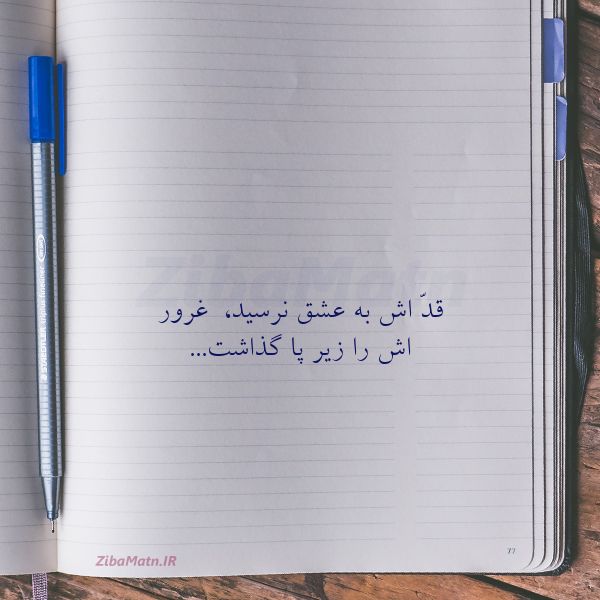 ZibaMatn
قدّ اش به عشق نرسید، غرور
اش را زیر پا گذاشت...
77
ZibaMatn.IR